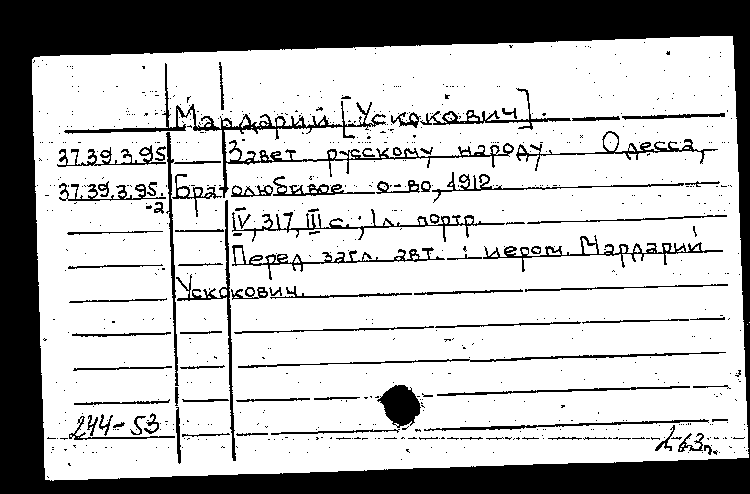 Мардарий [Ускокович].
37.39.3.95. Завет русскому народу. Одесса,
37.39.3.95.-2 Братолюбивое о-во, 1912.
IV, 317, III с.; 1л. портр.
Перед загл. авт. : иером. Мардарий
Ускокович.
244-53